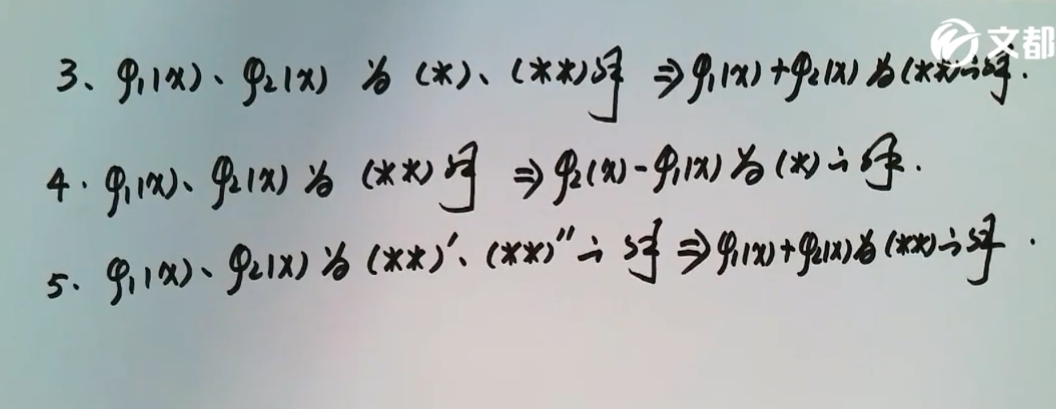 文都
3、φ₁(x)、φ₂(x) 为 (*)、(**)解 ⇒ φ₁(x)+φ₂(x) 为 (**)之解.
4. φ₁(x)、φ₂(x) 为 (**)解 ⇒ φ₂(x)-φ₁(x) 为 (*)之解.
5. φ₁(x)、φ₂(x) 为 (**)′、(**)″之解 ⇒ φ₁(x)+φ₂(x) 为 (**)之解.